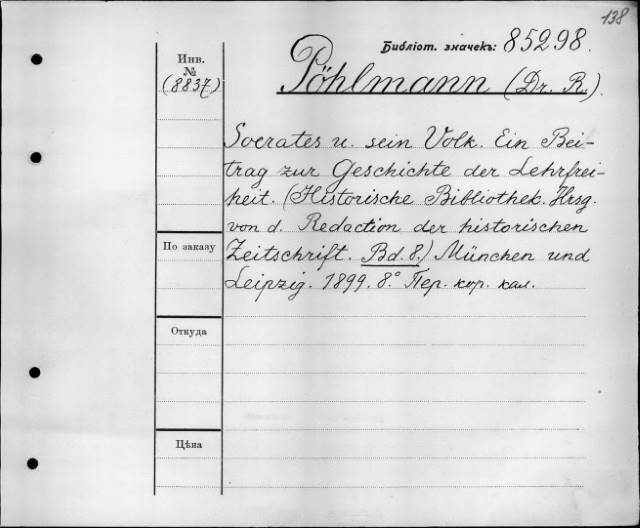 138
Библіот. значекъ: 85298.
Инв.
№
(8837)
Pöhlmann (Dr. R.)
Socrates u. sein Volk. Ein Bei-
trag zur Geschichte der Lehrfrei-
heit. (Historische Bibliothek. Hrsg.
von d. Redaction der historischen
Zeitschrift. Bd. 8.) München und
Leipzig. 1899. 8.° Пер. кор. кал.
По заказу
Откуда
Цѣна